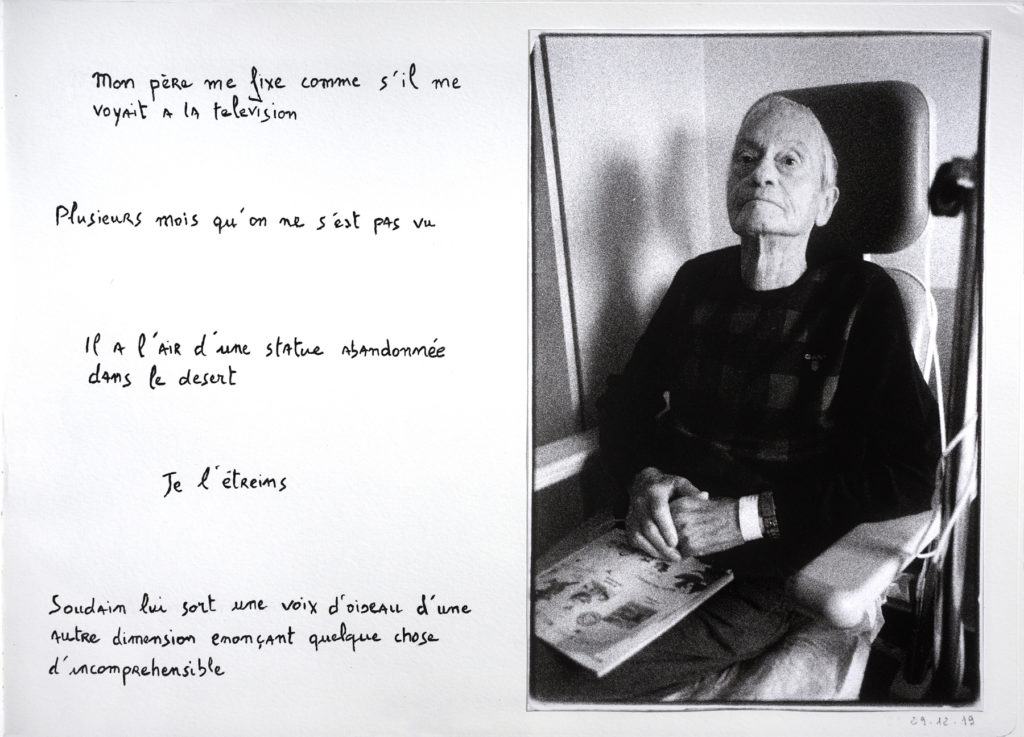 Mon père me fixe comme s'il me
voyait a la television
Plusieurs mois qu'on ne s'est pas vu
Il a l'air d'une statue abandonnée
dans le desert
Je l'étreins
Soudain lui sort une voix d'oiseau d'une
autre dimension enonçant quelque chose
d'incomprehensible
29.12.19